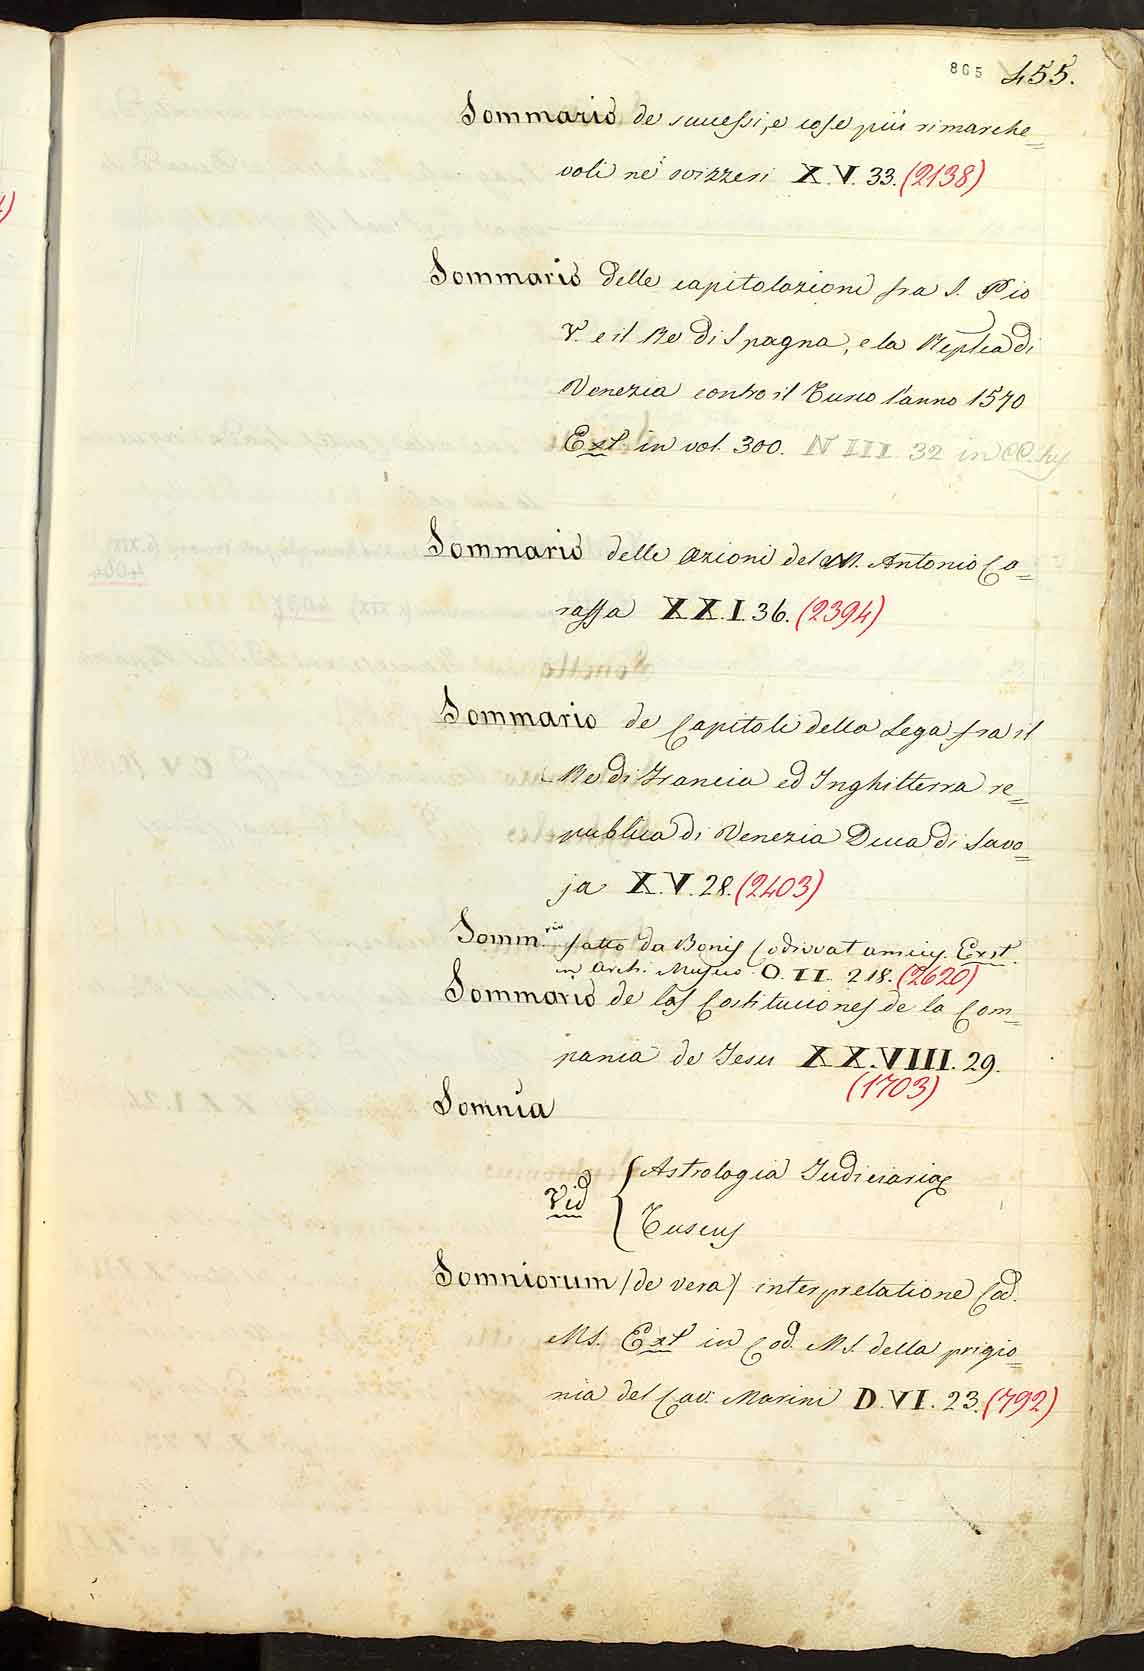 865 455.
Sommario de successi, e cose più rimarche=
voli ne' svizzeri X.V. 33. (2138)
Sommario delle capitolazioni fra S. Pio
V. e il Re di Spagna, e la Replica di
Venezia contro il Turco l'anno 1570
Ext. in vol. 300. N III 32 in
Sommario delle azioni del M. Antonio Ca=
raffa XX.I.36. (2394)
Sommario de Capitoli della Lega fra il
Re di Francia ed Inghilterra re=
publica di Venezia Duca di Savo=
ja X.V.28. (2403)
Somm.rio fatto da Bonis Exst.
in Arch. Museo O.II. 218. (2620)
Sommario de las Costituciones de la Com=
pania de Jesu XX.VIII.29.
(1703)
Somnia
Vid { Astrologia Judiciaria
Tuscus
Somniorum /de vera/ interpretatione Cod.
MS. Ext in Cod. MS. della prigio=
nia del Cav. Marini D.VI.23. (792)